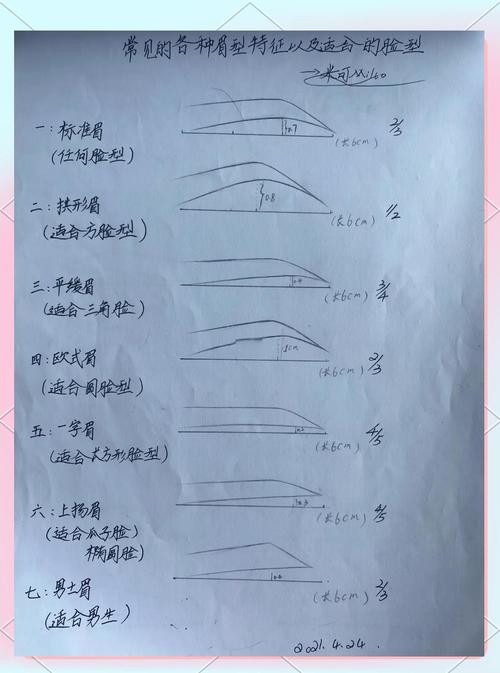 常见的各种眉型特征以及适合的脸型
→米可Miko
一：标准眉
(任何脸型)
0.7
(长6cm)
2/3
二：拱形眉
(适合方脸型)
0.8
(长6cm)
1/2
三：平缓眉
(适合三角脸)
0.4
(长6cm)
3/4
四：欧式眉
(适合圆脸型)
1cm
(长6cm)
2/3
五：一字眉
(适合长方形脸型)
(长6cm)
4/5
六：上扬眉
(适合瓜子脸)
椭圆脸)
0.3
(长6cm)
4/5
七：男士眉
(适合男生)
(长6cm)
2/3
2021.4.24